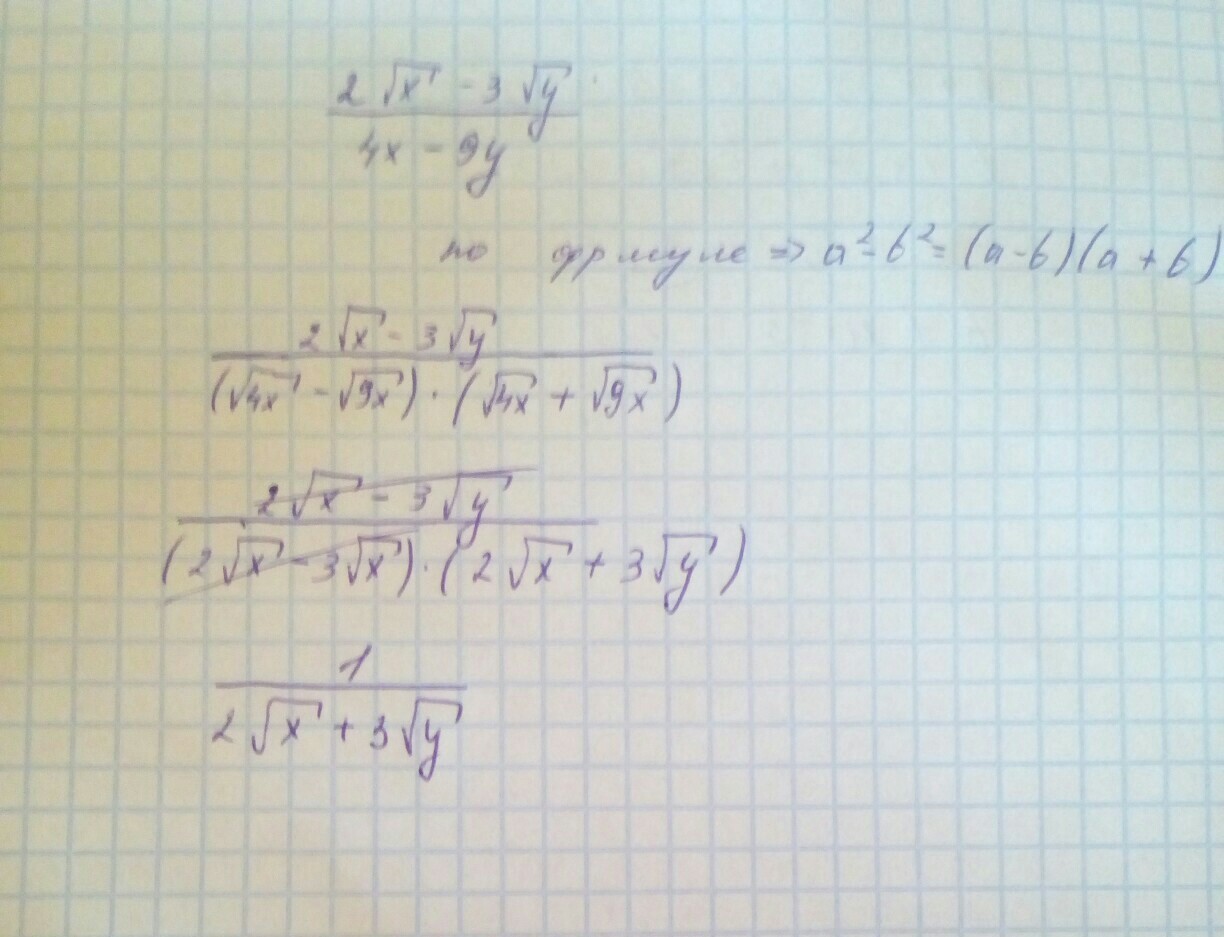 2√x - 3√y
4x - 9y
по формуле => a² - b² = (a - b)(a + b)
2√x - 3√y
(√4x - √9x) · (√4x + √9x)
2√x - 3√y
(2√x - 3√x) · (2√x + 3√y)
1
2√x + 3√y